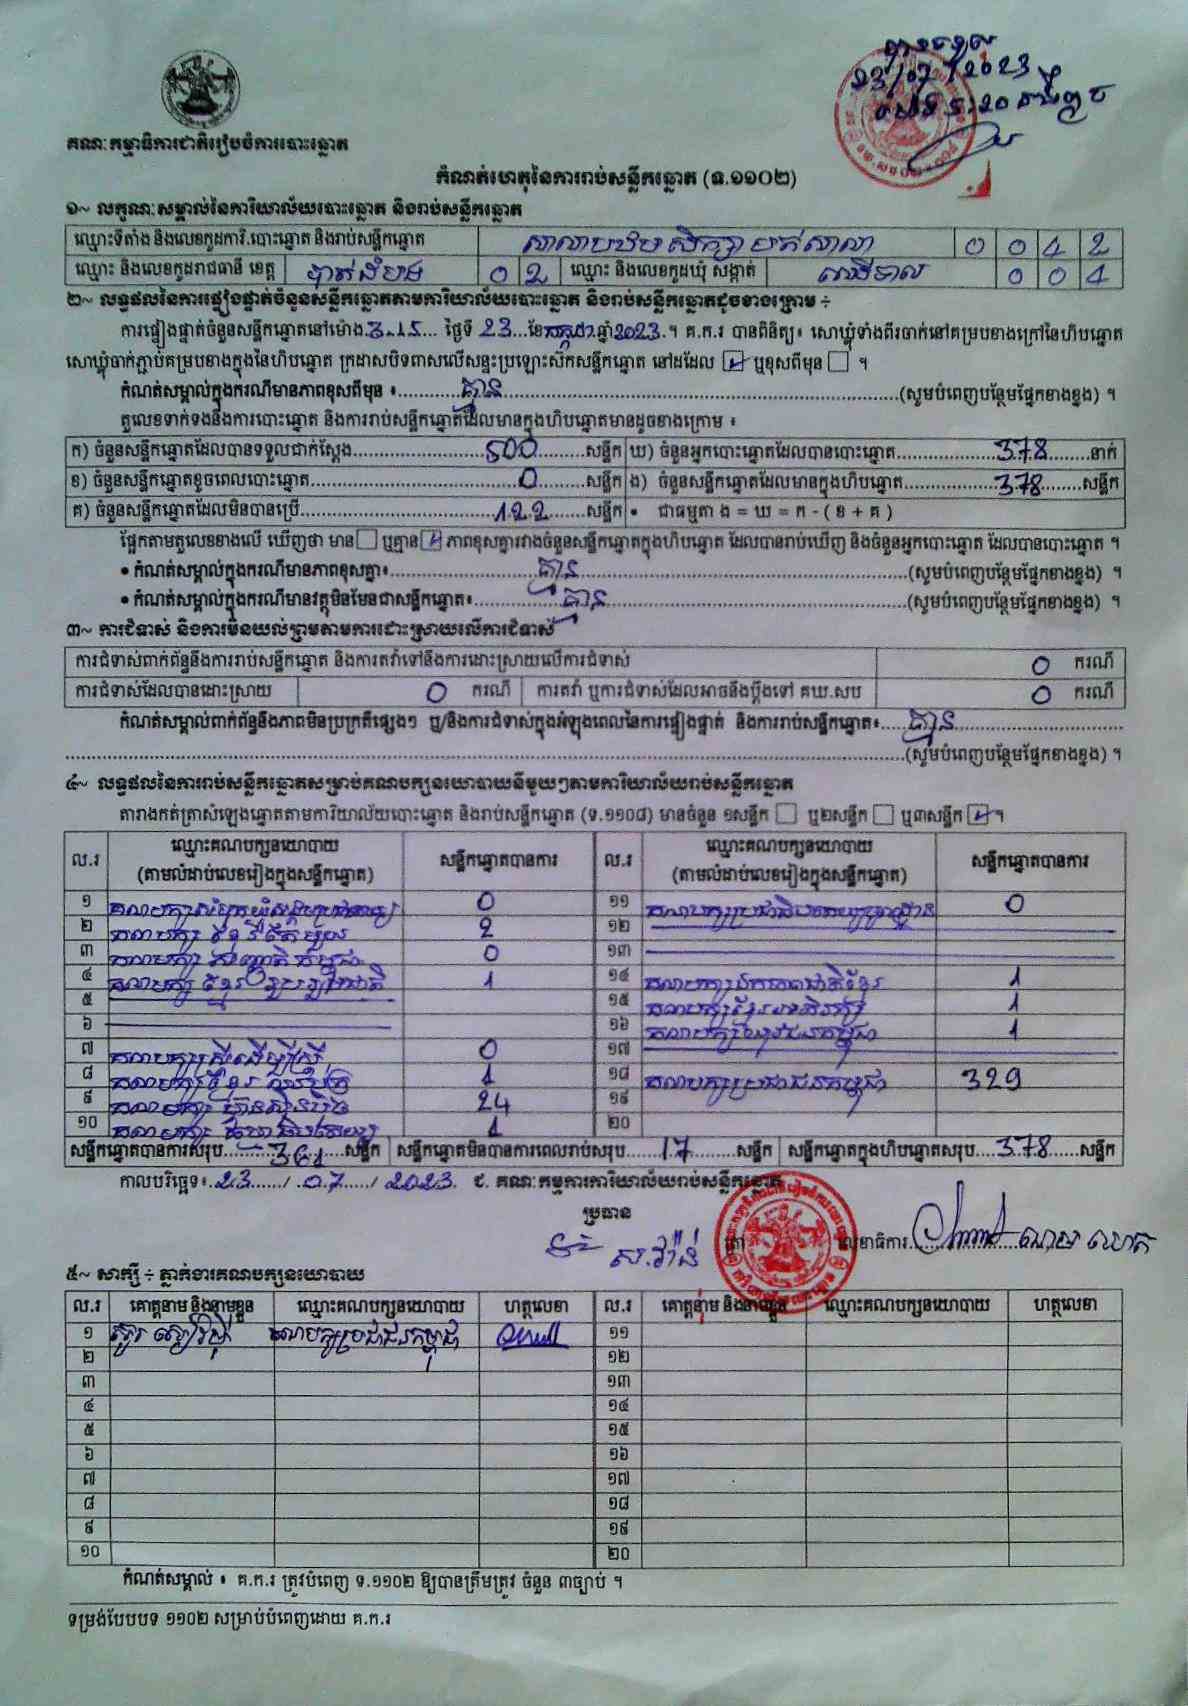 បានទទួល
23/07/2023
គណៈកម្មាធិការជាតិរៀបចំការបោះឆ្នោត
កំណត់ហេតុនៃការរាប់សន្លឹកឆ្នោត (ទ.១១០២)
១~ លក្ខណៈសម្គាល់នៃការិយាល័យបោះឆ្នោត និងរាប់សន្លឹកឆ្នោត
ឈ្មោះទីតាំង និងលេខកូដការិ.បោះឆ្នោត និងរាប់សន្លឹកឆ្នោត សាលាបឋមសិក្សា មត់សាលា 0 0 4 2
ឈ្មោះ និងលេខកូដរាជធានី ខេត្ត បាត់ដំបង 0 2 ឈ្មោះ និងលេខកូដឃុំ សង្កាត់ 0 0 4
២~ លទ្ធផលនៃការផ្ទៀងផ្ទាត់ចំនួនសន្លឹកឆ្នោតតាមការិយាល័យបោះឆ្នោត និងរាប់សន្លឹកឆ្នោតដូចខាងក្រោម ÷
ការផ្ទៀងផ្ទាត់ចំនួនសន្លឹកឆ្នោតនៅម៉ោង 3-15 ថ្ងៃទី 23 ខែ កក្កដា ឆ្នាំ 2023 ។ គ.ក.រ បានពិនិត្យ៖ សោឃ្លុំទាំងពីរចាក់នៅគម្របខាងក្រៅនៃហិបឆ្នោត
សោឃ្លុំចាក់ភ្ជាប់គម្របខាងក្នុងនៃហិបឆ្នោត ក្រដាសបិទពាសលើសន្ទះប្រឡោះស៊កសន្លឹកឆ្នោត នៅដដែល ☑ ឬខុសពីមុន ☐ ។
កំណត់សម្គាល់ក្នុងករណីមានភាពខុសពីមុន ៖ គ្មាន (សូមបំពេញបន្ថែមផ្នែកខាងខ្នង) ។
តួលេខទាក់ទងនឹងការបោះឆ្នោត និងការរាប់សន្លឹកឆ្នោតដែលមានក្នុងហិបឆ្នោតមានដូចខាងក្រោម ៖
ក) ចំនួនសន្លឹកឆ្នោតដែលបានទទួលជាក់ស្តែង 500 សន្លឹក ឃ) ចំនួនអ្នកបោះឆ្នោតដែលបានបោះឆ្នោត 378 នាក់
ខ) ចំនួនសន្លឹកឆ្នោតខូចពេលបោះឆ្នោត 0 សន្លឹក ង) ចំនួនសន្លឹកឆ្នោតដែលមានក្នុងហិបឆ្នោត 378 សន្លឹក
គ) ចំនួនសន្លឹកឆ្នោតដែលមិនបានប្រើ 122 សន្លឹក • ជាធម្មតា ង = ឃ = ក - ( ខ + គ )
ផ្អែកតាមតួលេខខាងលើ ឃើញថា មាន ☐ ឬគ្មាន ☑ ភាពខុសគ្នារវាងចំនួនសន្លឹកឆ្នោតក្នុងហិបឆ្នោត ដែលបានរាប់ឃើញ និងចំនួនអ្នកបោះឆ្នោត ដែលបានបោះឆ្នោត ។
• កំណត់សម្គាល់ក្នុងករណីមានភាពខុសគ្នា៖ គ្មាន (សូមបំពេញបន្ថែមផ្នែកខាងខ្នង) ។
• កំណត់សម្គាល់ក្នុងករណីមានវត្ថុមិនមែនជាសន្លឹកឆ្នោត៖ គ្មាន (សូមបំពេញបន្ថែមផ្នែកខាងខ្នង) ។
៣~ ការជំទាស់ និងការមិនយល់ព្រមតាមការដោះស្រាយលើការជំទាស់
ការជំទាស់ពាក់ព័ន្ធនឹងការរាប់សន្លឹកឆ្នោត និងការតវ៉ាទៅនឹងការដោះស្រាយលើការជំទាស់ 0 ករណី
ការជំទាស់ដែលបានដោះស្រាយ 0 ករណី ការតវ៉ា ឬការជំទាស់ដែលអាចនឹងប្តឹងទៅ គឃ.សប 0 ករណី
កំណត់សម្គាល់ពាក់ព័ន្ធនឹងភាពមិនប្រក្រតីផ្សេងៗ ឬ/និងការជំទាស់ក្នុងអំឡុងពេលនៃការផ្ទៀងផ្ទាត់ និងការរាប់សន្លឹកឆ្នោត៖ គ្មាន
(សូមបំពេញបន្ថែមផ្នែកខាងខ្នង) ។
៤~ លទ្ធផលនៃការរាប់សន្លឹកឆ្នោតសម្រាប់គណបក្សនយោបាយនីមួយៗតាមការិយាល័យរាប់សន្លឹកឆ្នោត
តារាងកត់ត្រាសំឡេងឆ្នោតតាមការិយាល័យបោះឆ្នោត និងរាប់សន្លឹកឆ្នោត (ទ.១១០៨) មានចំនួន ១សន្លឹក ☐ ឬ២សន្លឹក ☐ ឬ៣សន្លឹក ☑ ។
ល.រ ឈ្មោះគណបក្សនយោបាយ សន្លឹកឆ្នោតបានការ ល.រ ឈ្មោះគណបក្សនយោបាយ សន្លឹកឆ្នោតបានការ
(តាមលំដាប់លេខរៀងក្នុងសន្លឹកឆ្នោត) (តាមលំដាប់លេខរៀងក្នុងសន្លឹកឆ្នោត)
១ គណបក្ស 0 ១១ គណបក្សប្រជាធិបតេយ្យមូលដ្ឋាន 0
២ គណបក្ស ខ្មែរតែមួយ 2 ១២
៣ គណបក្ស សញ្ជាតិកម្ពុជា 0 ១៣
៤ គណបក្ស ខ្មែរ រួបរួមជាតិ 1 ១៤ គណបក្សឯកភាពជាតិខ្មែរ 1
៥ ១៥ គណបក្សខ្មែរអភិរក្ស 1
៦ ១៦ គណបក្សយុវជនកម្ពុជា 1
៧ គណបក្សស្ត្រីដើម្បីស្ត្រី 0 ១៧
៨ គណបក្ស ខ្មែរ 1 ១៨ គណបក្សប្រជាជនកម្ពុជា 329
៩ គណបក្ស ហ្វ៊ុនស៊ិនប៉ិច 24 ១៩
១០ គណបក្ស 1 ២០
សន្លឹកឆ្នោតបានការសរុប 361 សន្លឹក សន្លឹកឆ្នោតមិនបានការពេលរាប់សរុប 17 សន្លឹក សន្លឹកឆ្នោតក្នុងហិបឆ្នោតសរុប 378 សន្លឹក
កាលបរិច្ឆេទ៖ 23 / 07 / 2023 ជ. គណៈកម្មការការិយាល័យរាប់សន្លឹកឆ្នោត
ប្រធាន
លេខាធិការ
៥~ សាក្សី ÷ ភ្នាក់ងារគណបក្សនយោបាយ
ល.រ គោត្តនាម និងនាមខ្លួន ឈ្មោះគណបក្សនយោបាយ ហត្ថលេខា ល.រ គោត្តនាម និងនាមខ្លួន ឈ្មោះគណបក្សនយោបាយ ហត្ថលេខា
១ គណបក្សប្រជាជនកម្ពុជា ១១
២ ១២
៣ ១៣
៤ ១៤
៥ ១៥
៦ ១៦
៧ ១៧
៨ ១៨
៩ ១៩
១០ ២០
កំណត់សម្គាល់ ៖ គ.ក.រ ត្រូវបំពេញ ទ.១១០២ ឱ្យបានត្រឹមត្រូវ ចំនួន ៣ច្បាប់ ។
ទម្រង់បែបបទ ១១០២ សម្រាប់បំពេញដោយ គ.ក.រ